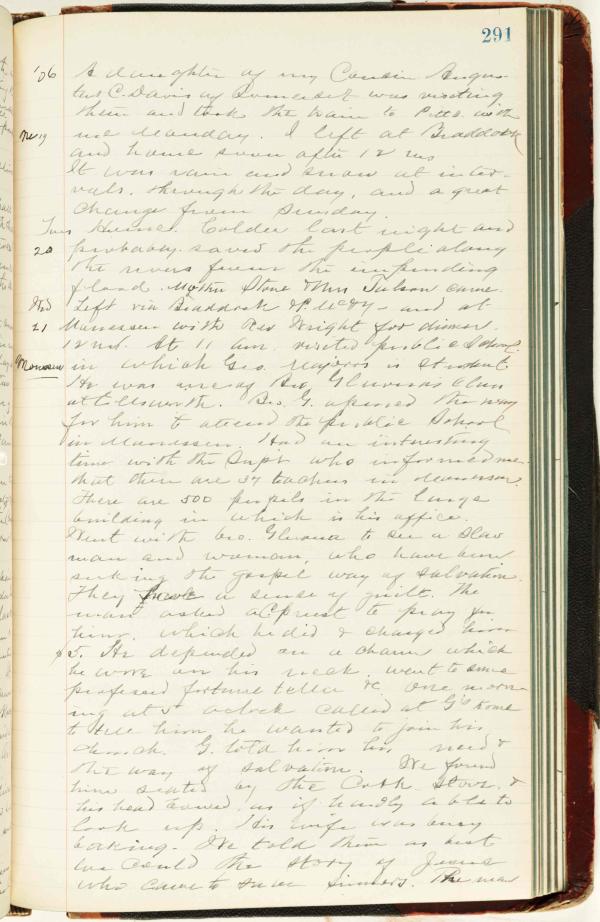 291
'06 A daughter of my Cousin Augus-
tus C. Davis of Somerset was visiting
them and took the train to Pitts. with
Mo 19 me Monday. I left at Braddock
and home soon after 12 ms
It was rain and snow at inter-
vals, through the day, and a great
change from Sunday.
Tues Home. Colder last night and
20 probably saved the people along
the rivers from the impending
flood. Mother Stone & Mrs came
Wed Left via Braddock & P. McK & Y - and at
21 Monessen with Rev Wright for dinner.
12 m. At 11 am. visited public School
Monessen in which Geo. is student.
He was in Bro. class
at Ellsworth. Bro. G. opened the way
for him to attend the public School
in Monessen. Had an interesting
time with the Supt who informed me
that there are 37 teachers in Monessen.
There are 500 pupils in the large
building in which is his office.
Went with bro. to see a Slav
man and woman, who have been
seeking the gospel way of salvation.
They have a sense of guilt. The
man asked a priest to pray for
him, which he did & charged him
$5. He depended on a charm which
he wore on his neck, went to some
professed fortune teller &c. One morn-
ing at 5 oclock called at G's home
to tell him he wanted to join his
church. G. told him his need &
the way of salvation. We found
him seated by the Cook Stove, &
his head bowed, as if hardly able to
look up. His wife was busy
baking. We told them as best
we could the story of Jesus
who came to save sinners. The man